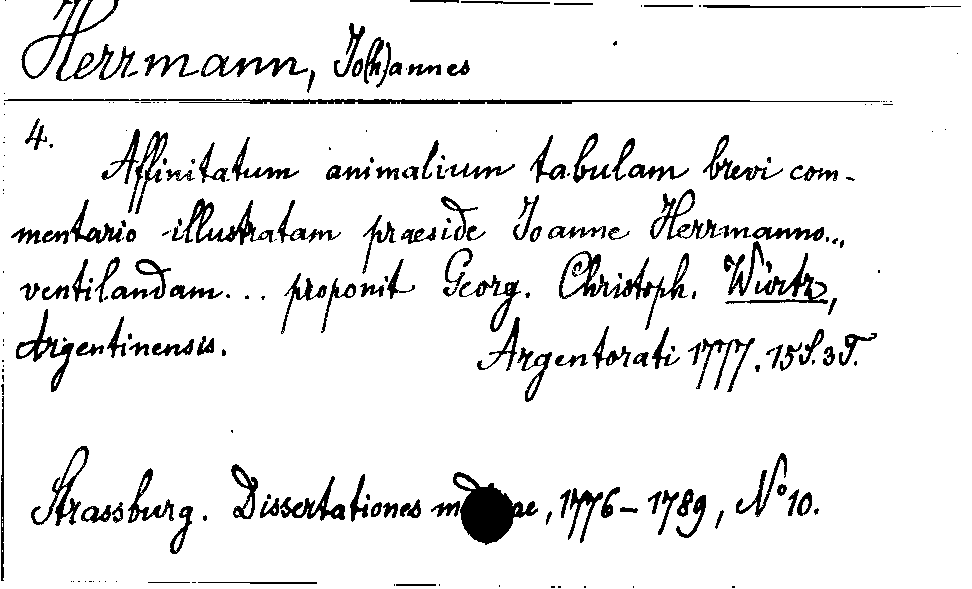 Herrmann, Jo(h)annes
4.
Affinitatum animalium tabulam brevi com-
mentario illustratam praeside Joanne Herrmanno...
ventilandam... proponit Georg. Christoph. Würtz,
Argentinensis.
Argentorati 1777. 15 S. 3 T.
Strassburg. Dissertationes , 1776–1789, No 10.